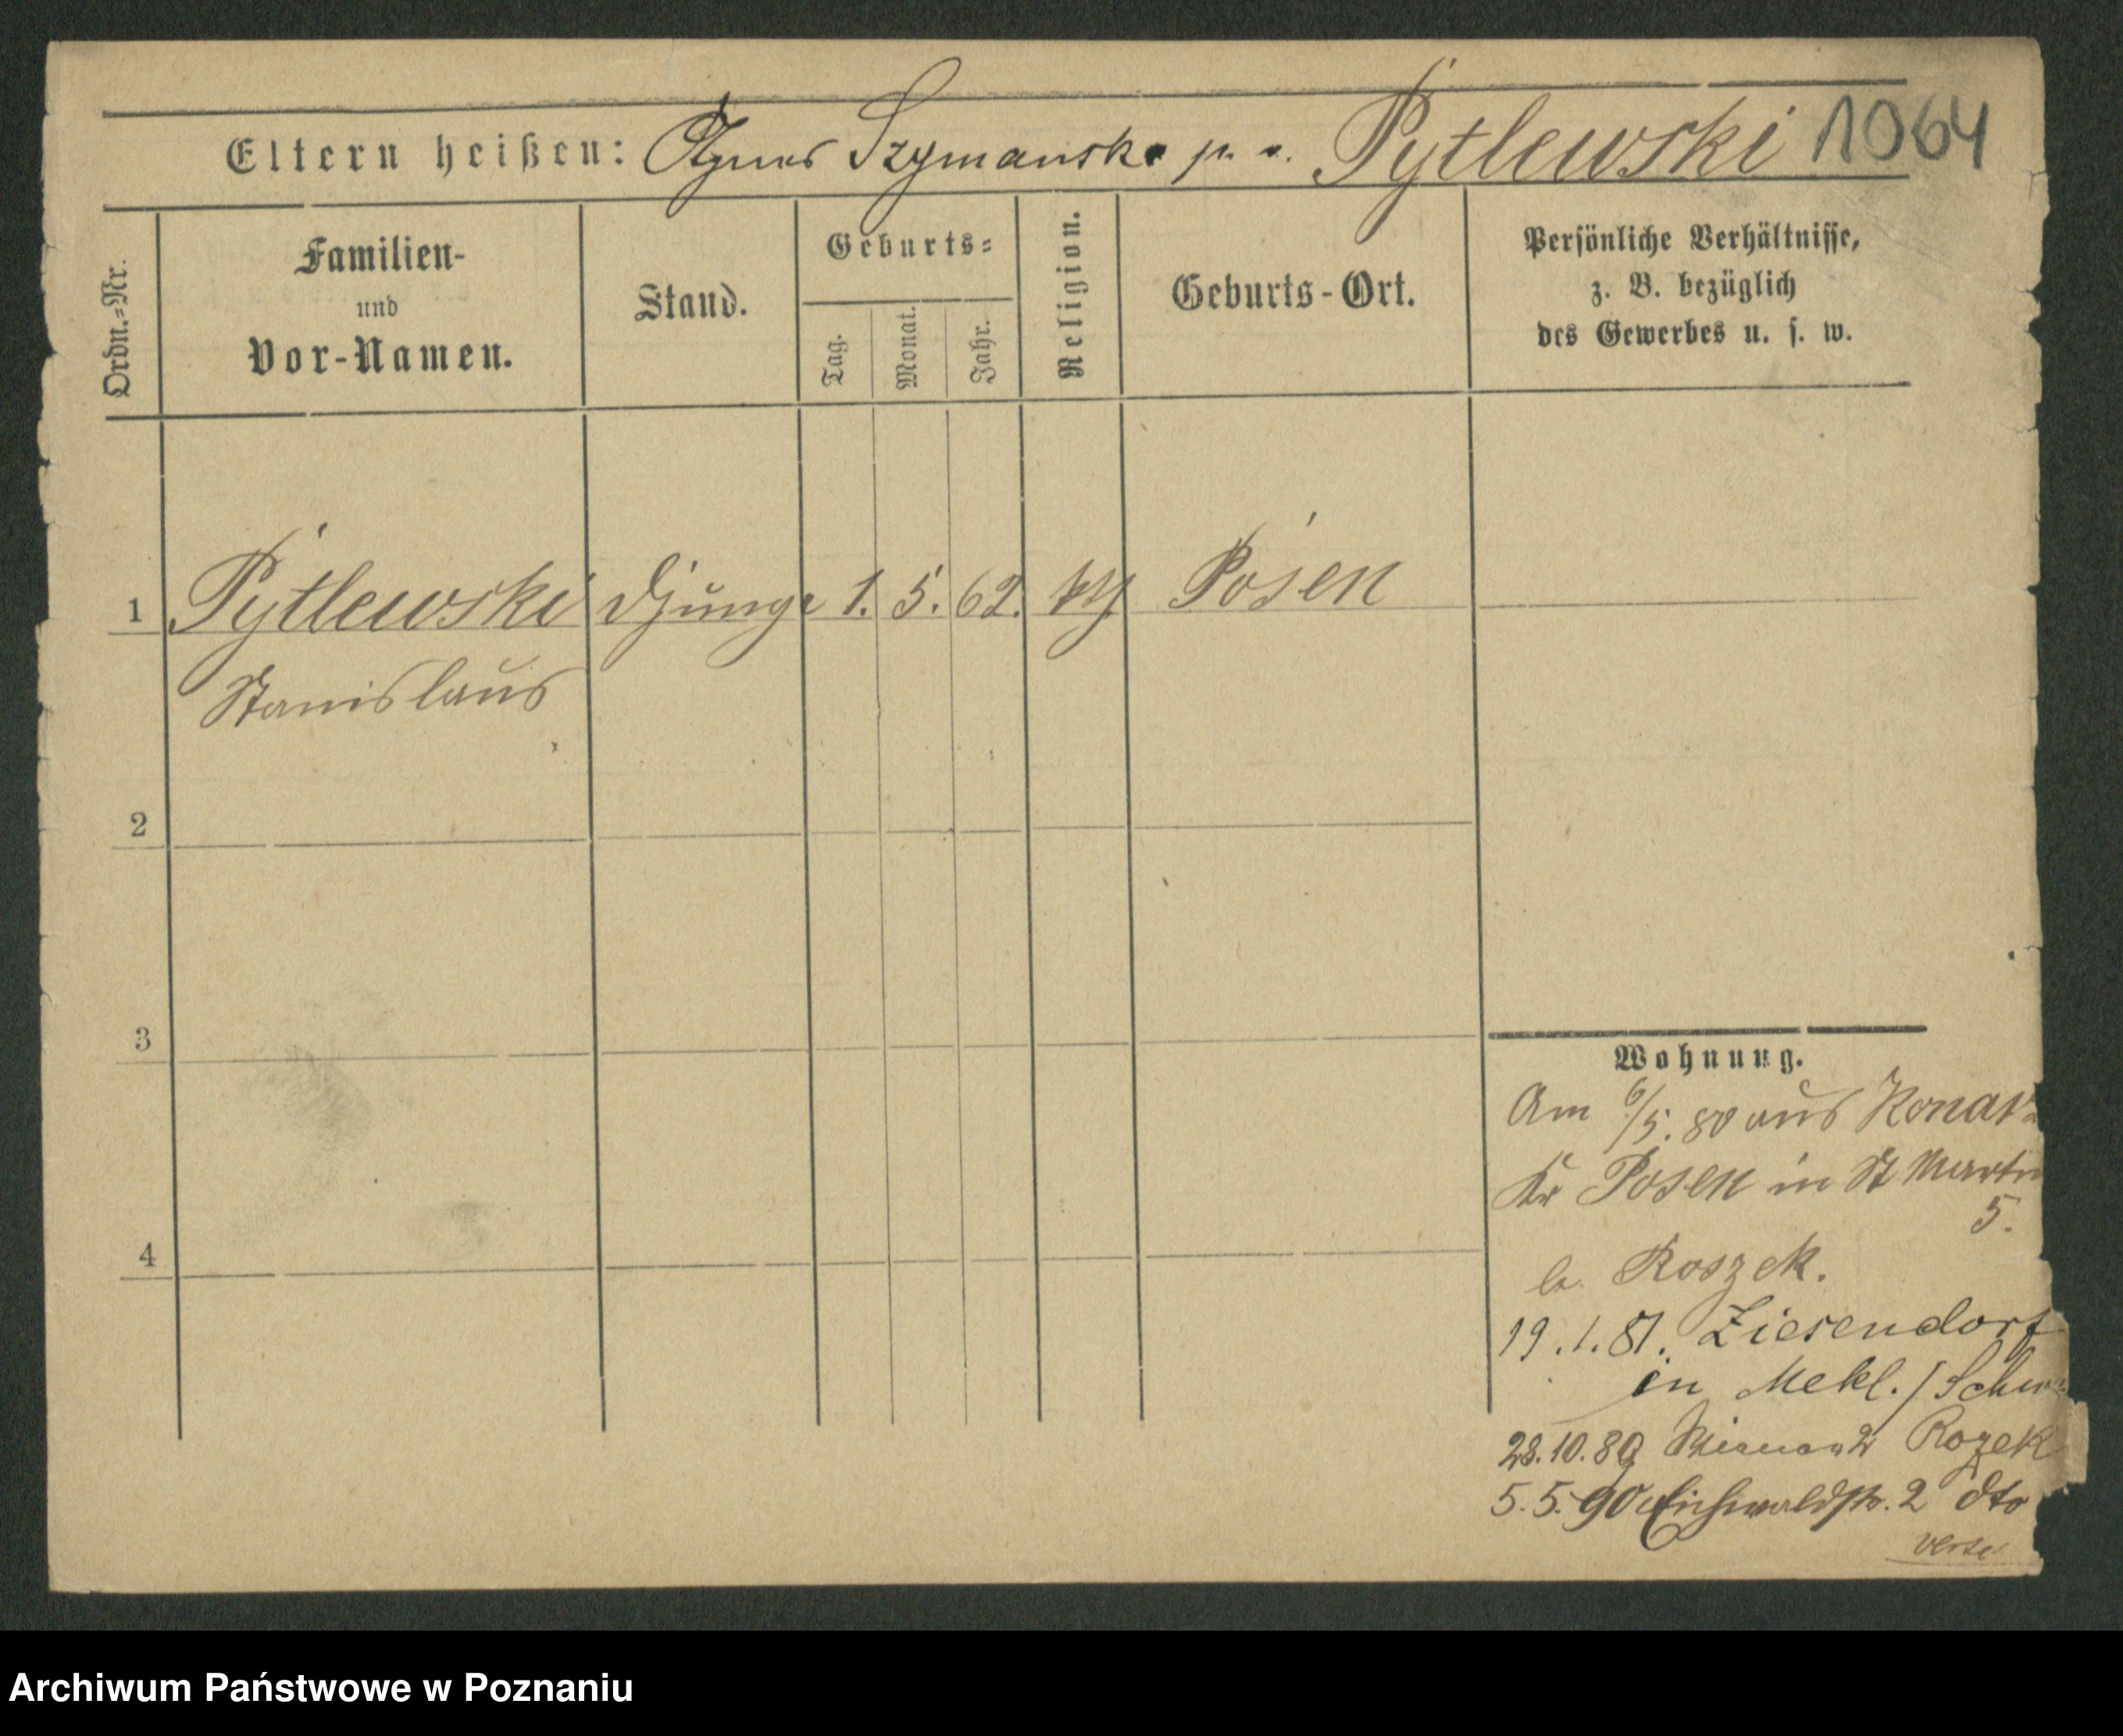 Eltern heißen: Agnes Szymanska p. v. Pytlewski 1064
Ordn.-Nr.
Familien-
und
Vor-Namen.
Stand.
Geburts-
Tag.
Monat.
Jahr.
Religion.
Geburts-Ort.
Persönliche Verhältnisse,
z. B. bezüglich
des Gewerbes u. s. w.
1 Pytlewski Djunge 1. 5. 62. kth Posen
Stanislaus
2
3
4
Wohnung.
Am 6/5. 80 aus
Kr Posen in St Martin
5.
b. Roszek.
19.1.81. Ziesendorf
in Mekl./Schw
28.10.89 Rozek
5.5.90 Eichwaldstr. 2 dto
verte
Archiwum Państwowe w Poznaniu